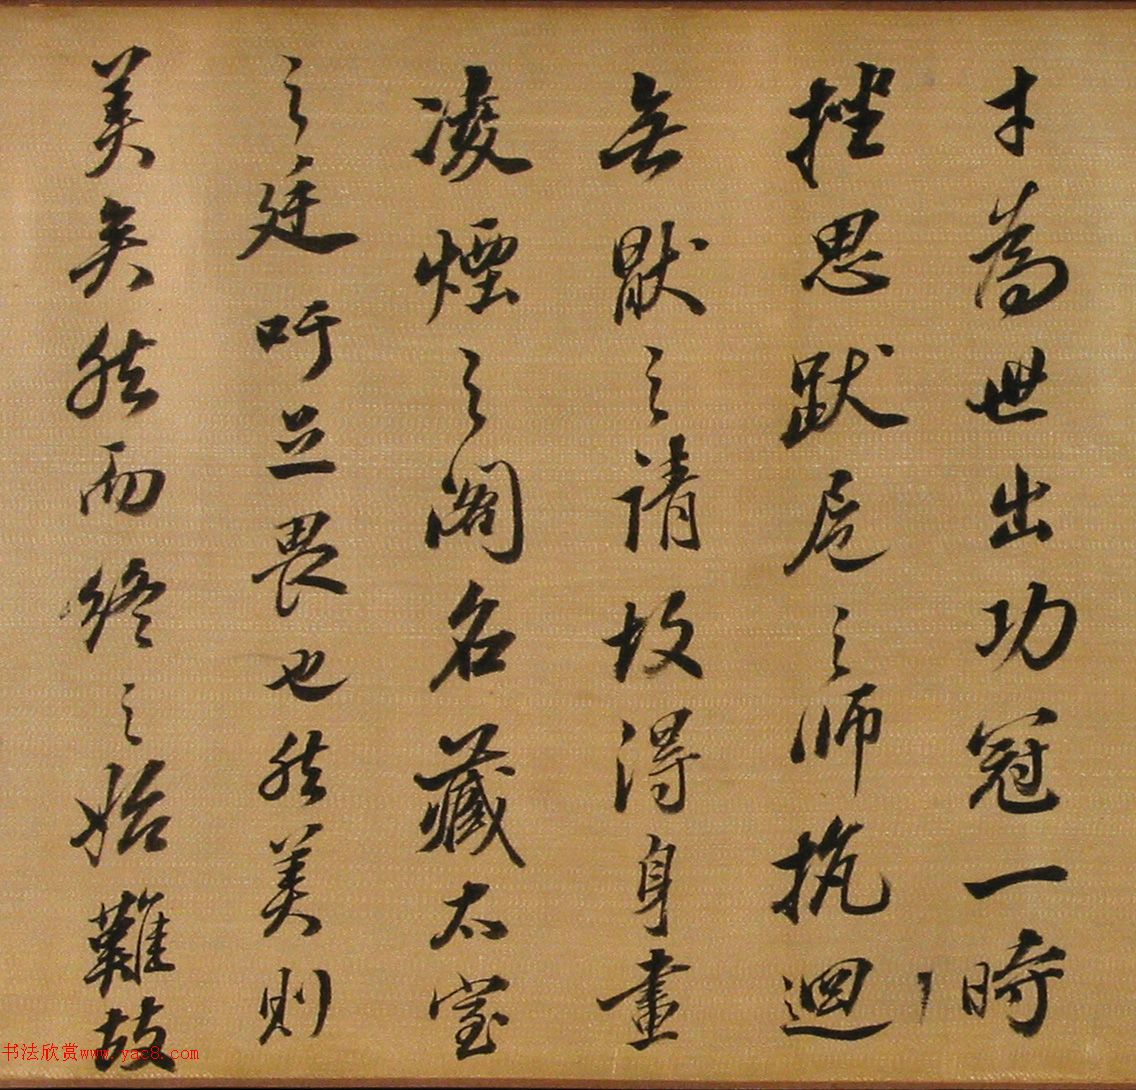 才為世出功冠一時
挫思跋扈之師抗迴
無猒之請故得身畫
凌煙之閣名藏太室
之廷吁足畏也然美則
美矣然而終之始難故
书法欣赏www.yac8.com